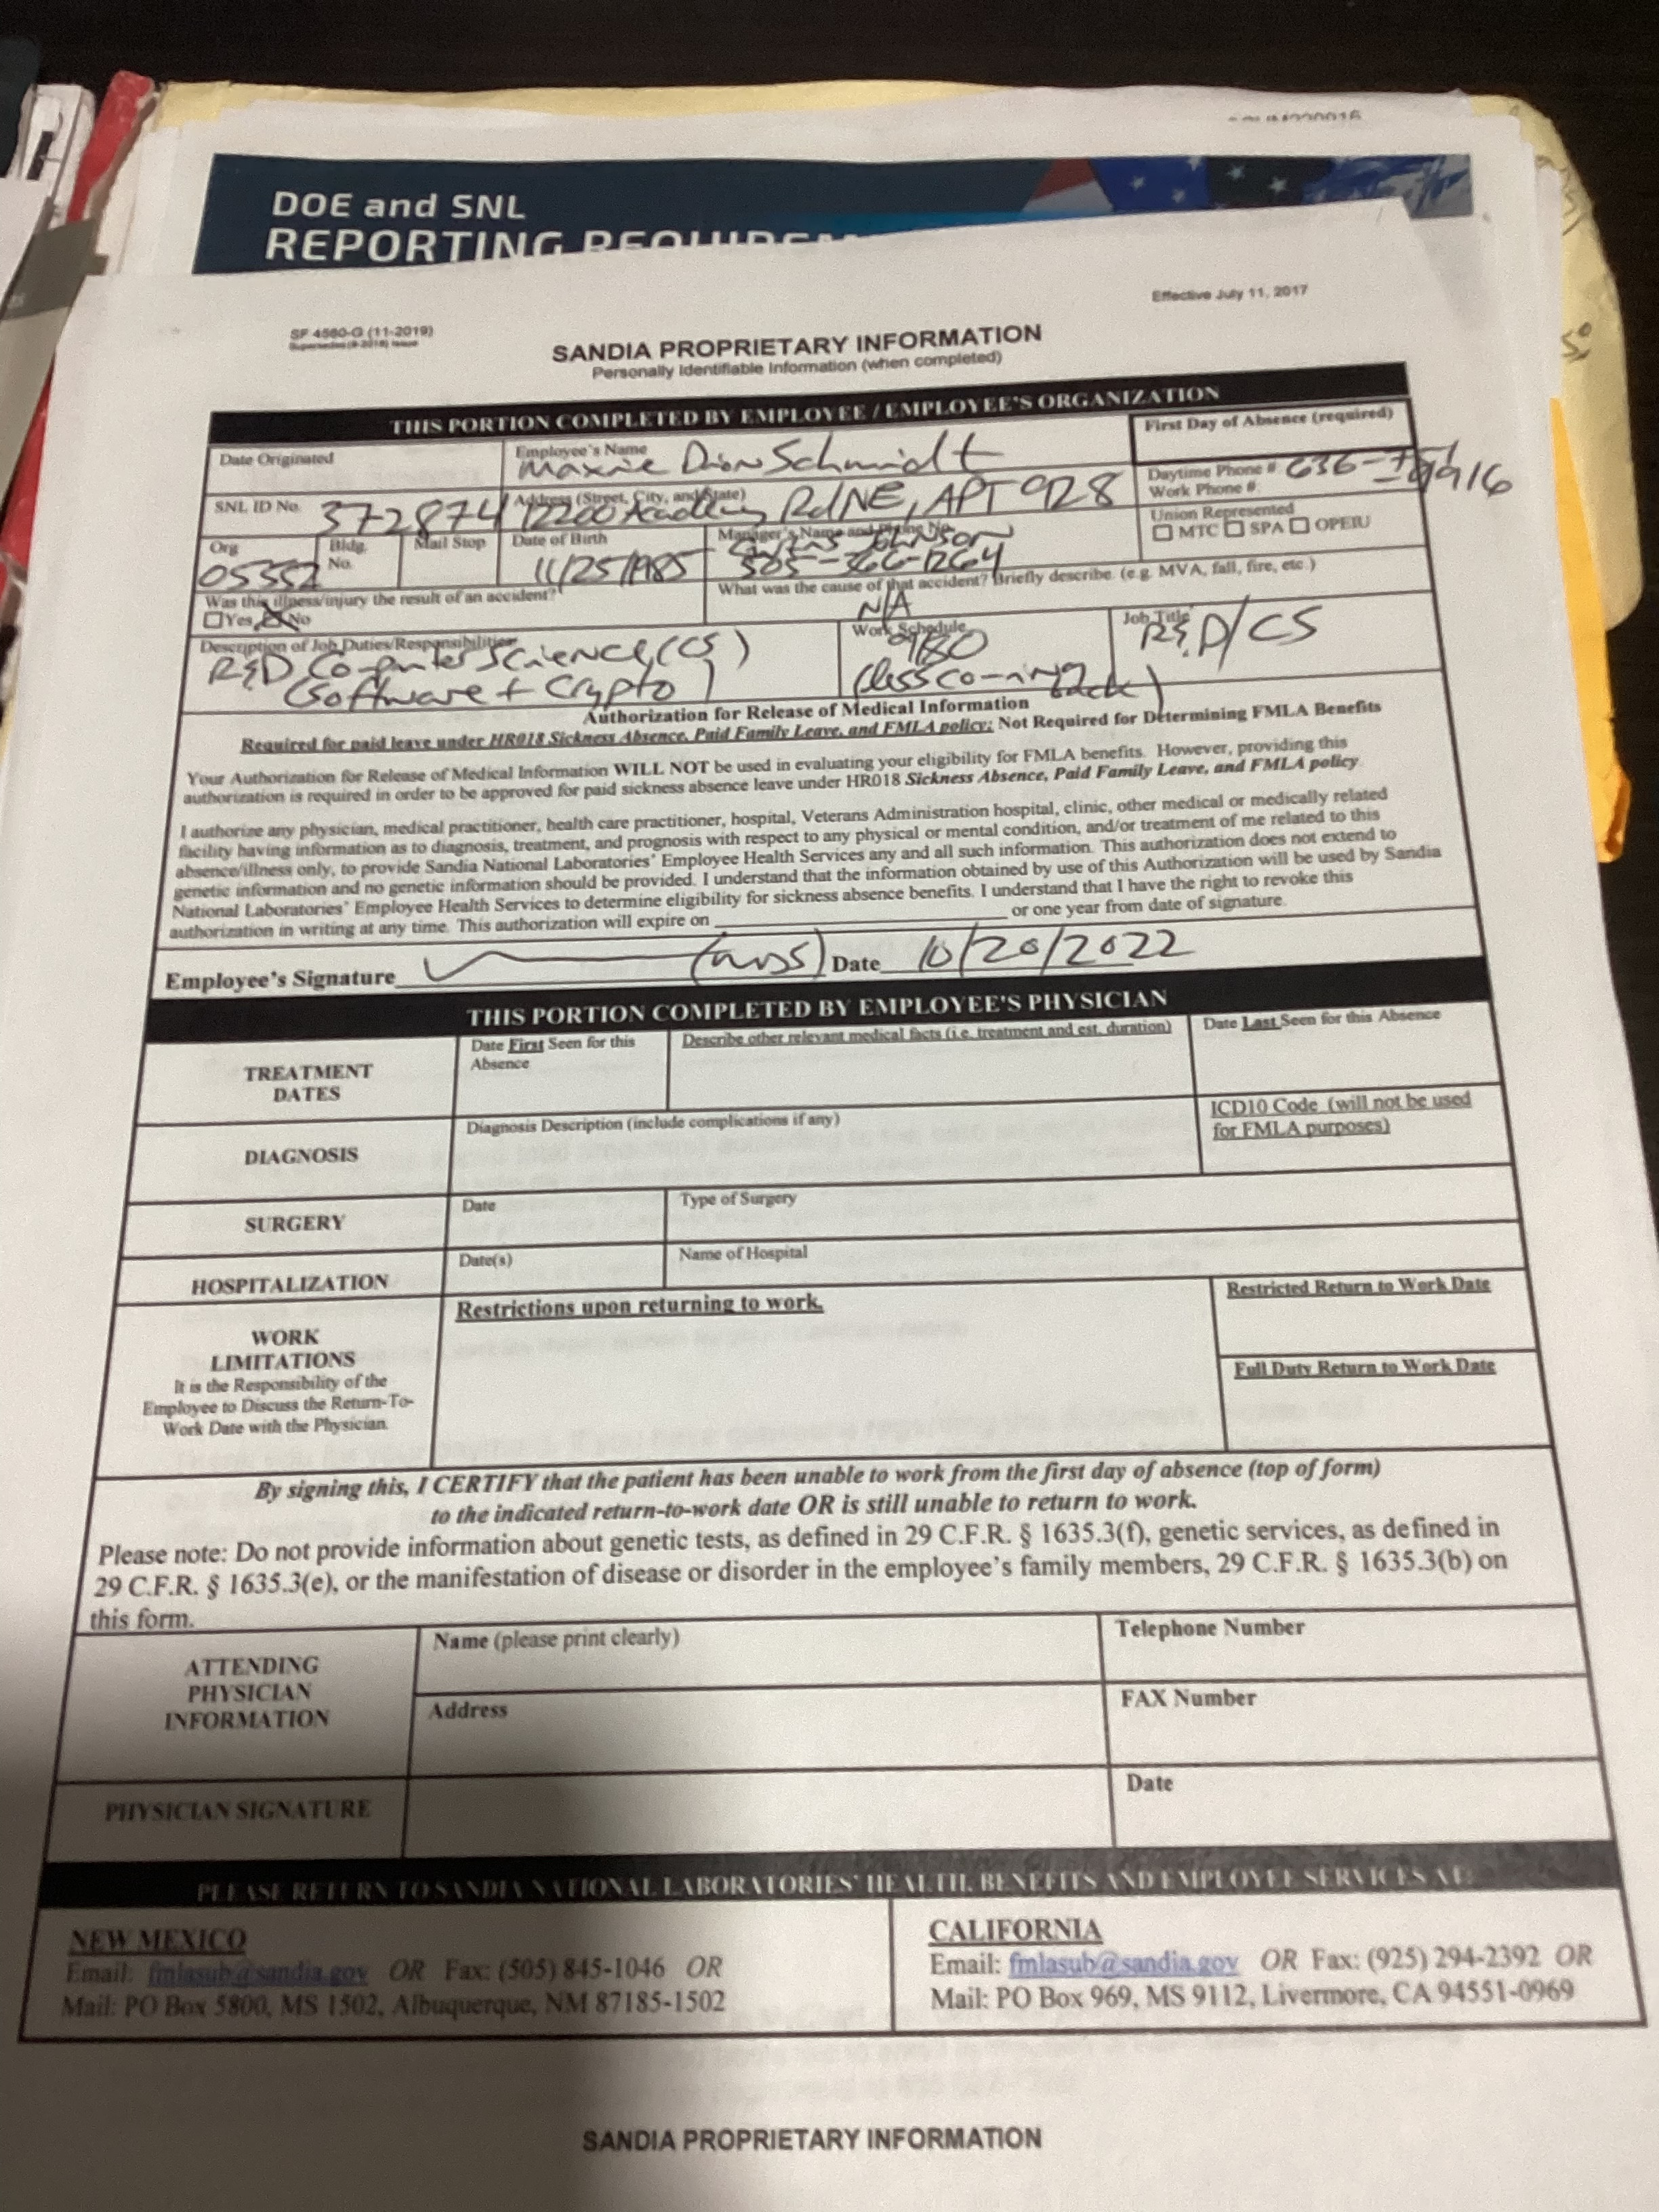 DOE and SNL
REPORTING
Effective July 11, 2017
SF 4580-G (11-2019)
Supersedes (9-2018) issue
SANDIA PROPRIETARY INFORMATION
Personally Identifiable Information (when completed)
THIS PORTION COMPLETED BY EMPLOYEE / EMPLOYEE'S ORGANIZATION
Date Originated
Employee's Name
Dion Schmidt
First Day of Absence (required)
SNL ID No.
372874
Address (Street, City, and State)
12200 Academy Rd NE, APT 928
Daytime Phone #
636-
Work Phone #:
Org
05352
Bldg. No.
Mail Stop
Date of Birth
11/25/1985
Manager's Name and Phone No.
Johnson
505-366-1264
Union Represented
MTC SPA OPEIU
Was this illness/injury the result of an accident?
Yes No
What was the cause of that accident? Briefly describe. (e.g. MVA, fall, fire, etc.)
N/A
Description of Job Duties/Responsibilities
R&D Computer Science (CS)
(Software + Crypto)
Work Schedule
9/80
Job Title
R&D/CS
Authorization for Release of Medical Information
Required for paid leave under HR018 Sickness Absence, Paid Family Leave, and FMLA policy; Not Required for Determining FMLA Benefits
Your Authorization for Release of Medical Information WILL NOT be used in evaluating your eligibility for FMLA benefits. However, providing this
authorization is required in order to be approved for paid sickness absence leave under HR018 Sickness Absence, Paid Family Leave, and FMLA policy.
I authorize any physician, medical practitioner, health care practitioner, hospital, Veterans Administration hospital, clinic, other medical or medically related
facility having information as to diagnosis, treatment, and prognosis with respect to any physical or mental condition, and/or treatment of me related to this
absence/illness only, to provide Sandia National Laboratories' Employee Health Services any and all such information. This authorization does not extend to
genetic information and no genetic information should be provided. I understand that the information obtained by use of this Authorization will be used by Sandia
National Laboratories' Employee Health Services to determine eligibility for sickness absence benefits. I understand that I have the right to revoke this
authorization in writing at any time. This authorization will expire on or one year from date of signature.
Employee's Signature (MDS) Date 10/20/2022
THIS PORTION COMPLETED BY EMPLOYEE'S PHYSICIAN
TREATMENT
DATES
Date First Seen for this
Absence
Describe other relevant medical facts (i.e. treatment and est. duration)
Date Last Seen for this Absence
DIAGNOSIS
Diagnosis Description (include complications if any)
ICD10 Code (will not be used
for FMLA purposes)
SURGERY
Date
Type of Surgery
HOSPITALIZATION
Date(s)
Name of Hospital
WORK
LIMITATIONS
It is the Responsibility of the
Employee to Discuss the Return-To-
Work Date with the Physician.
Restrictions upon returning to work.
Restricted Return to Work Date
Full Duty Return to Work Date
By signing this, I CERTIFY that the patient has been unable to work from the first day of absence (top of form)
to the indicated return-to-work date OR is still unable to return to work.
Please note: Do not provide information about genetic tests, as defined in 29 C.F.R. § 1635.3(f), genetic services, as defined in
29 C.F.R. § 1635.3(e), or the manifestation of disease or disorder in the employee's family members, 29 C.F.R. § 1635.3(b) on
this form.
ATTENDING
PHYSICIAN
INFORMATION
Name (please print clearly)
Telephone Number
Address
FAX Number
PHYSICIAN SIGNATURE
Date
PLEASE RETURN TO SANDIA NATIONAL LABORATORIES' HEALTH, BENEFITS AND EMPLOYEE SERVICES AT:
NEW MEXICO
Email: fmlasub@sandia.gov OR Fax: (505) 845-1046 OR
Mail: PO Box 5800, MS 1502, Albuquerque, NM 87185-1502
CALIFORNIA
Email: fmlasub@sandia.gov OR Fax: (925) 294-2392 OR
Mail: PO Box 969, MS 9112, Livermore, CA 94551-0969
SANDIA PROPRIETARY INFORMATION